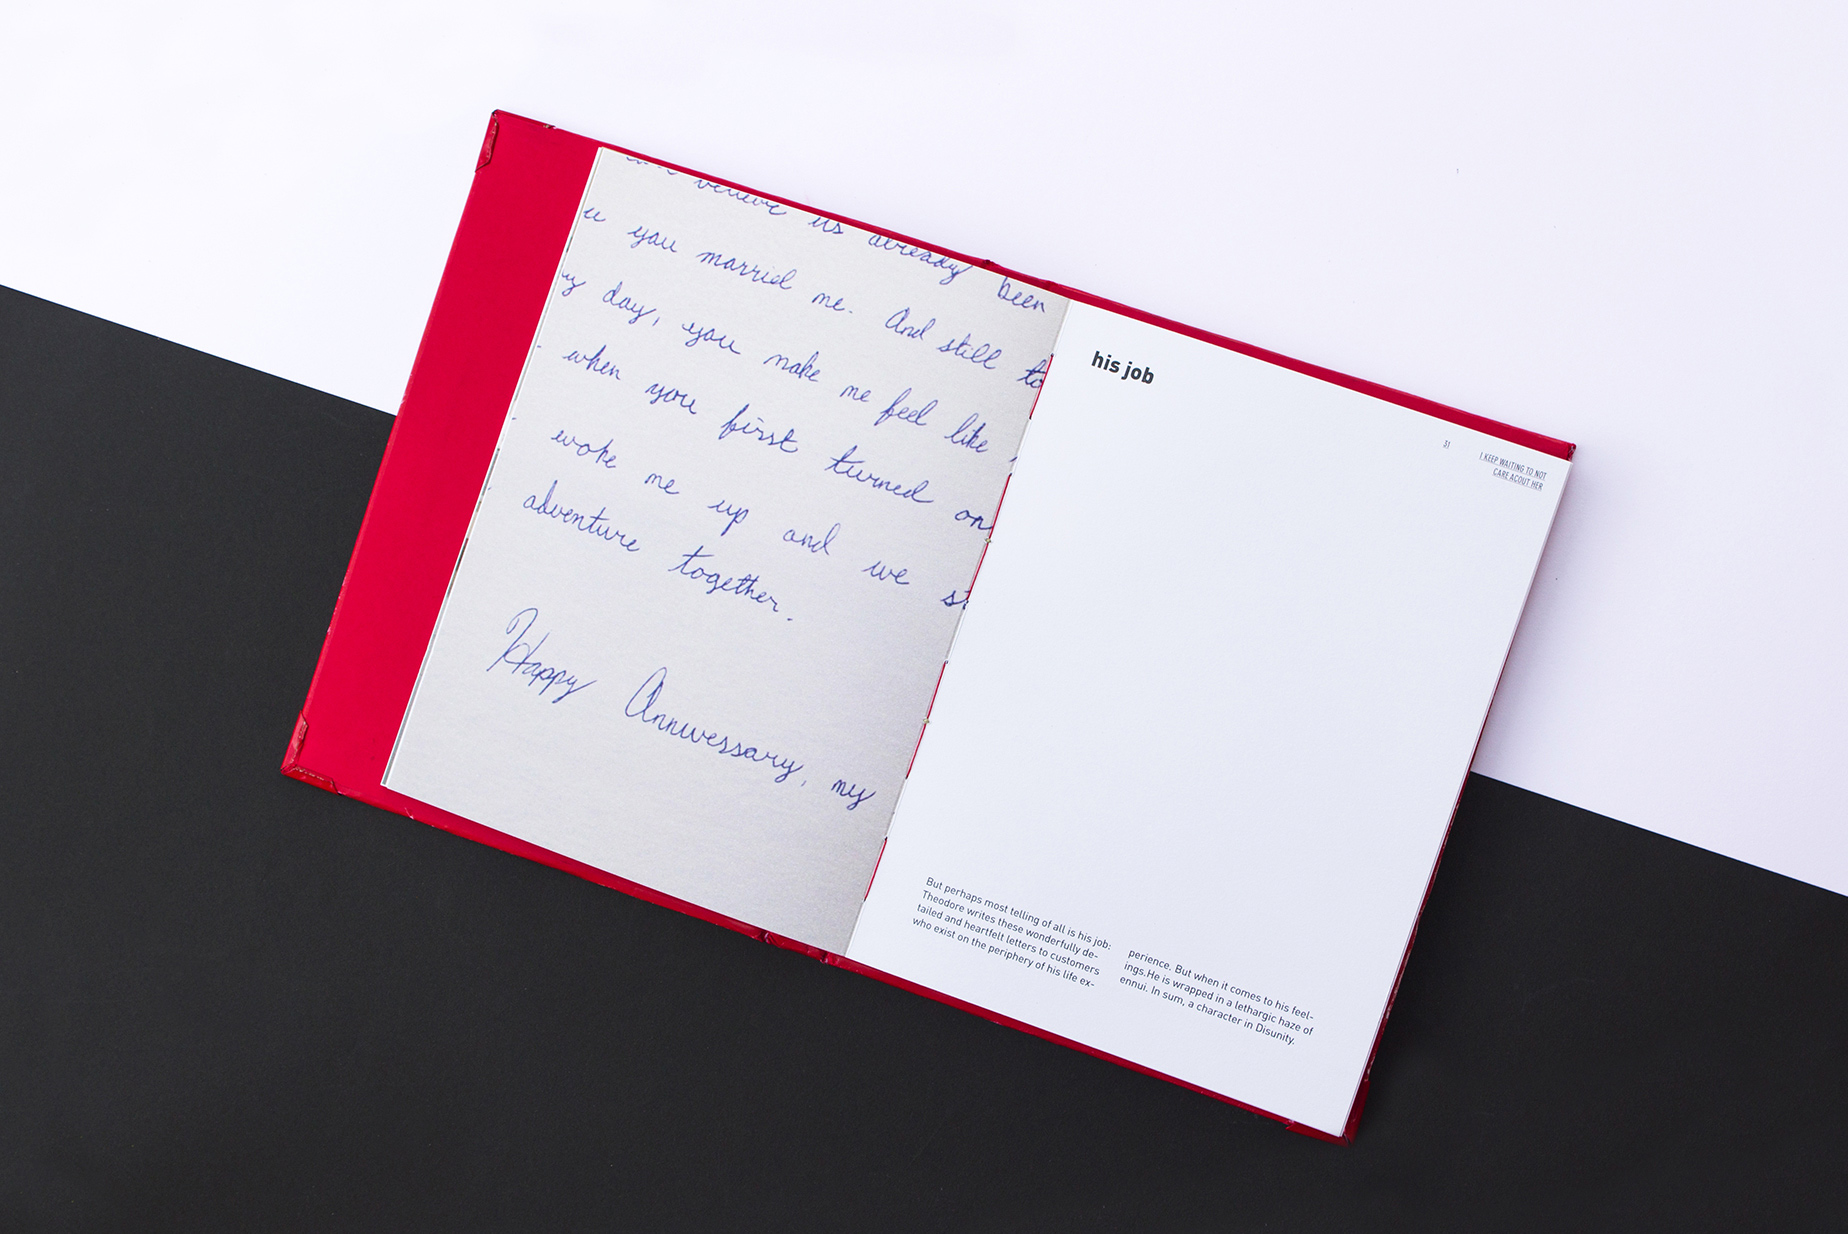 believe its already been
you married me. And still to
day, you make me feel like
when you first turned on
woke me up and we st
adventure together.
Happy Anniversary, my
his job
51
I KEEP WAITING TO NOT
CARE ACOUT HER
But perhaps most telling of all is his job:
Theodore writes these wonderfully de-
tailed and heartfelt letters to customers
who exist on the periphery of his life ex-
perience. But when it comes to his feel-
ings.He is wrapped in a lethargic haze of
ennui. In sum, a character in Disunity.